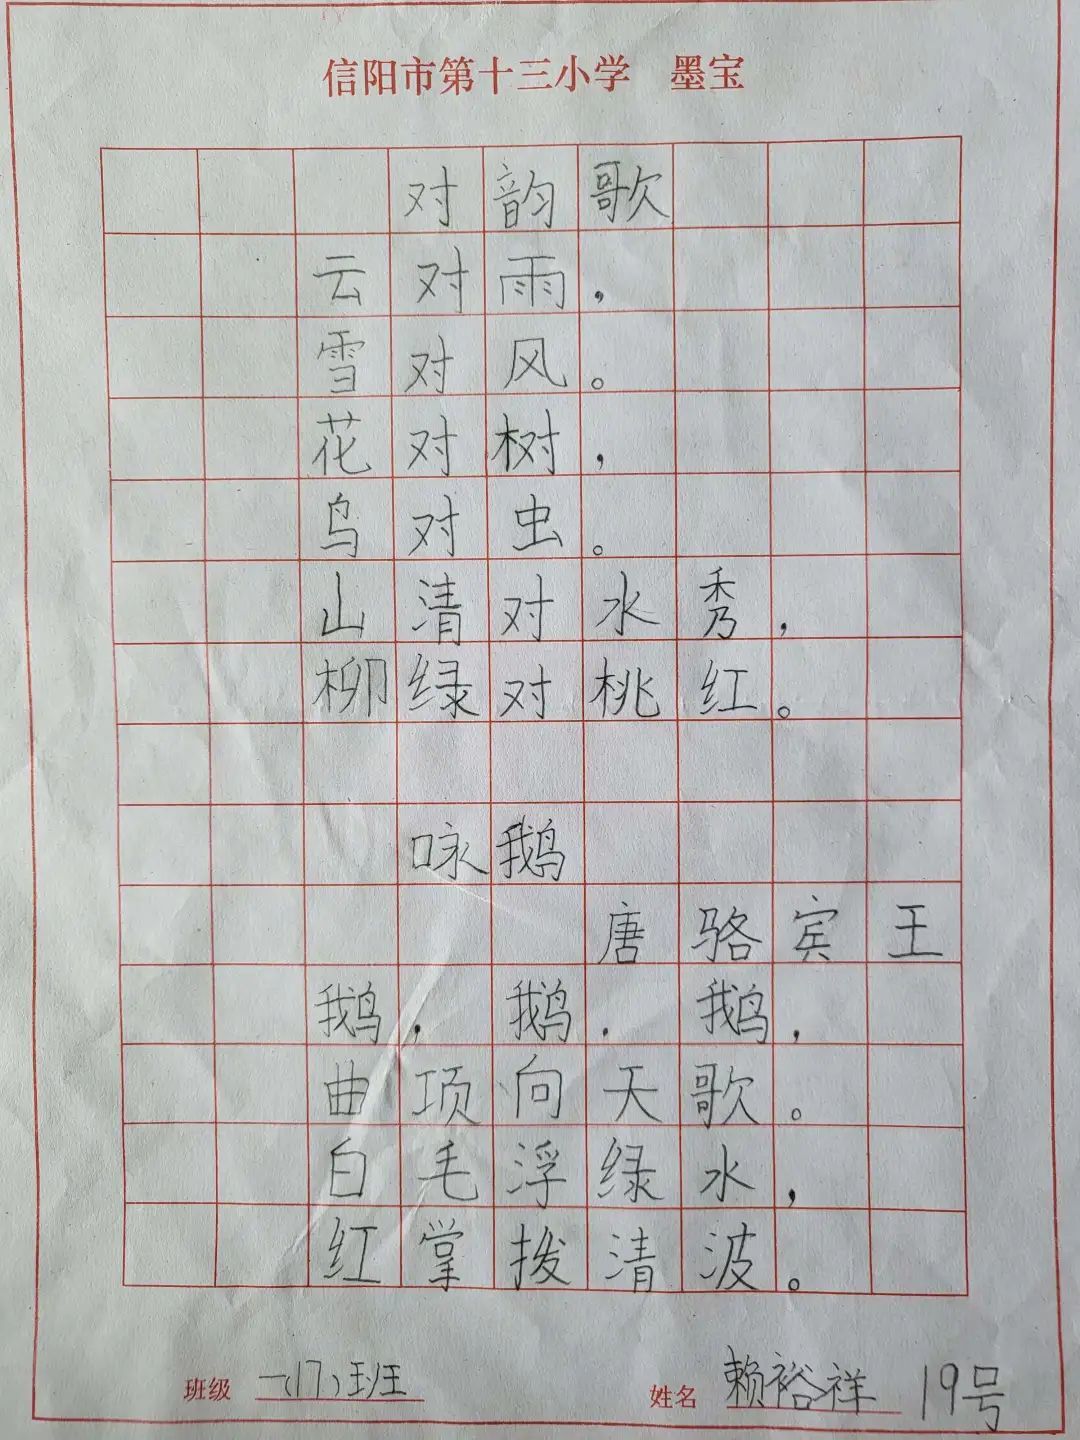 信阳市第十三小学 墨宝
对韵歌
云对雨，
雪对风。
花对树，
鸟对虫。
山清对水秀，
柳绿对桃红。
咏鹅
唐 骆宾王
鹅，鹅，鹅，
曲项向天歌。
白毛浮绿水，
红掌拨清波。
班级 一(17)班 姓名 赖裕祥 19号